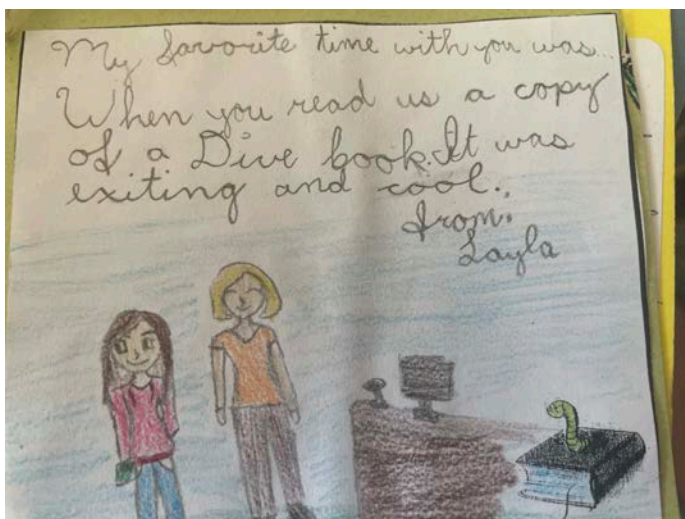 My favorite time with you was...
When you read us a copy
of a Dive book. It was
exiting and cool.
from:
Layla